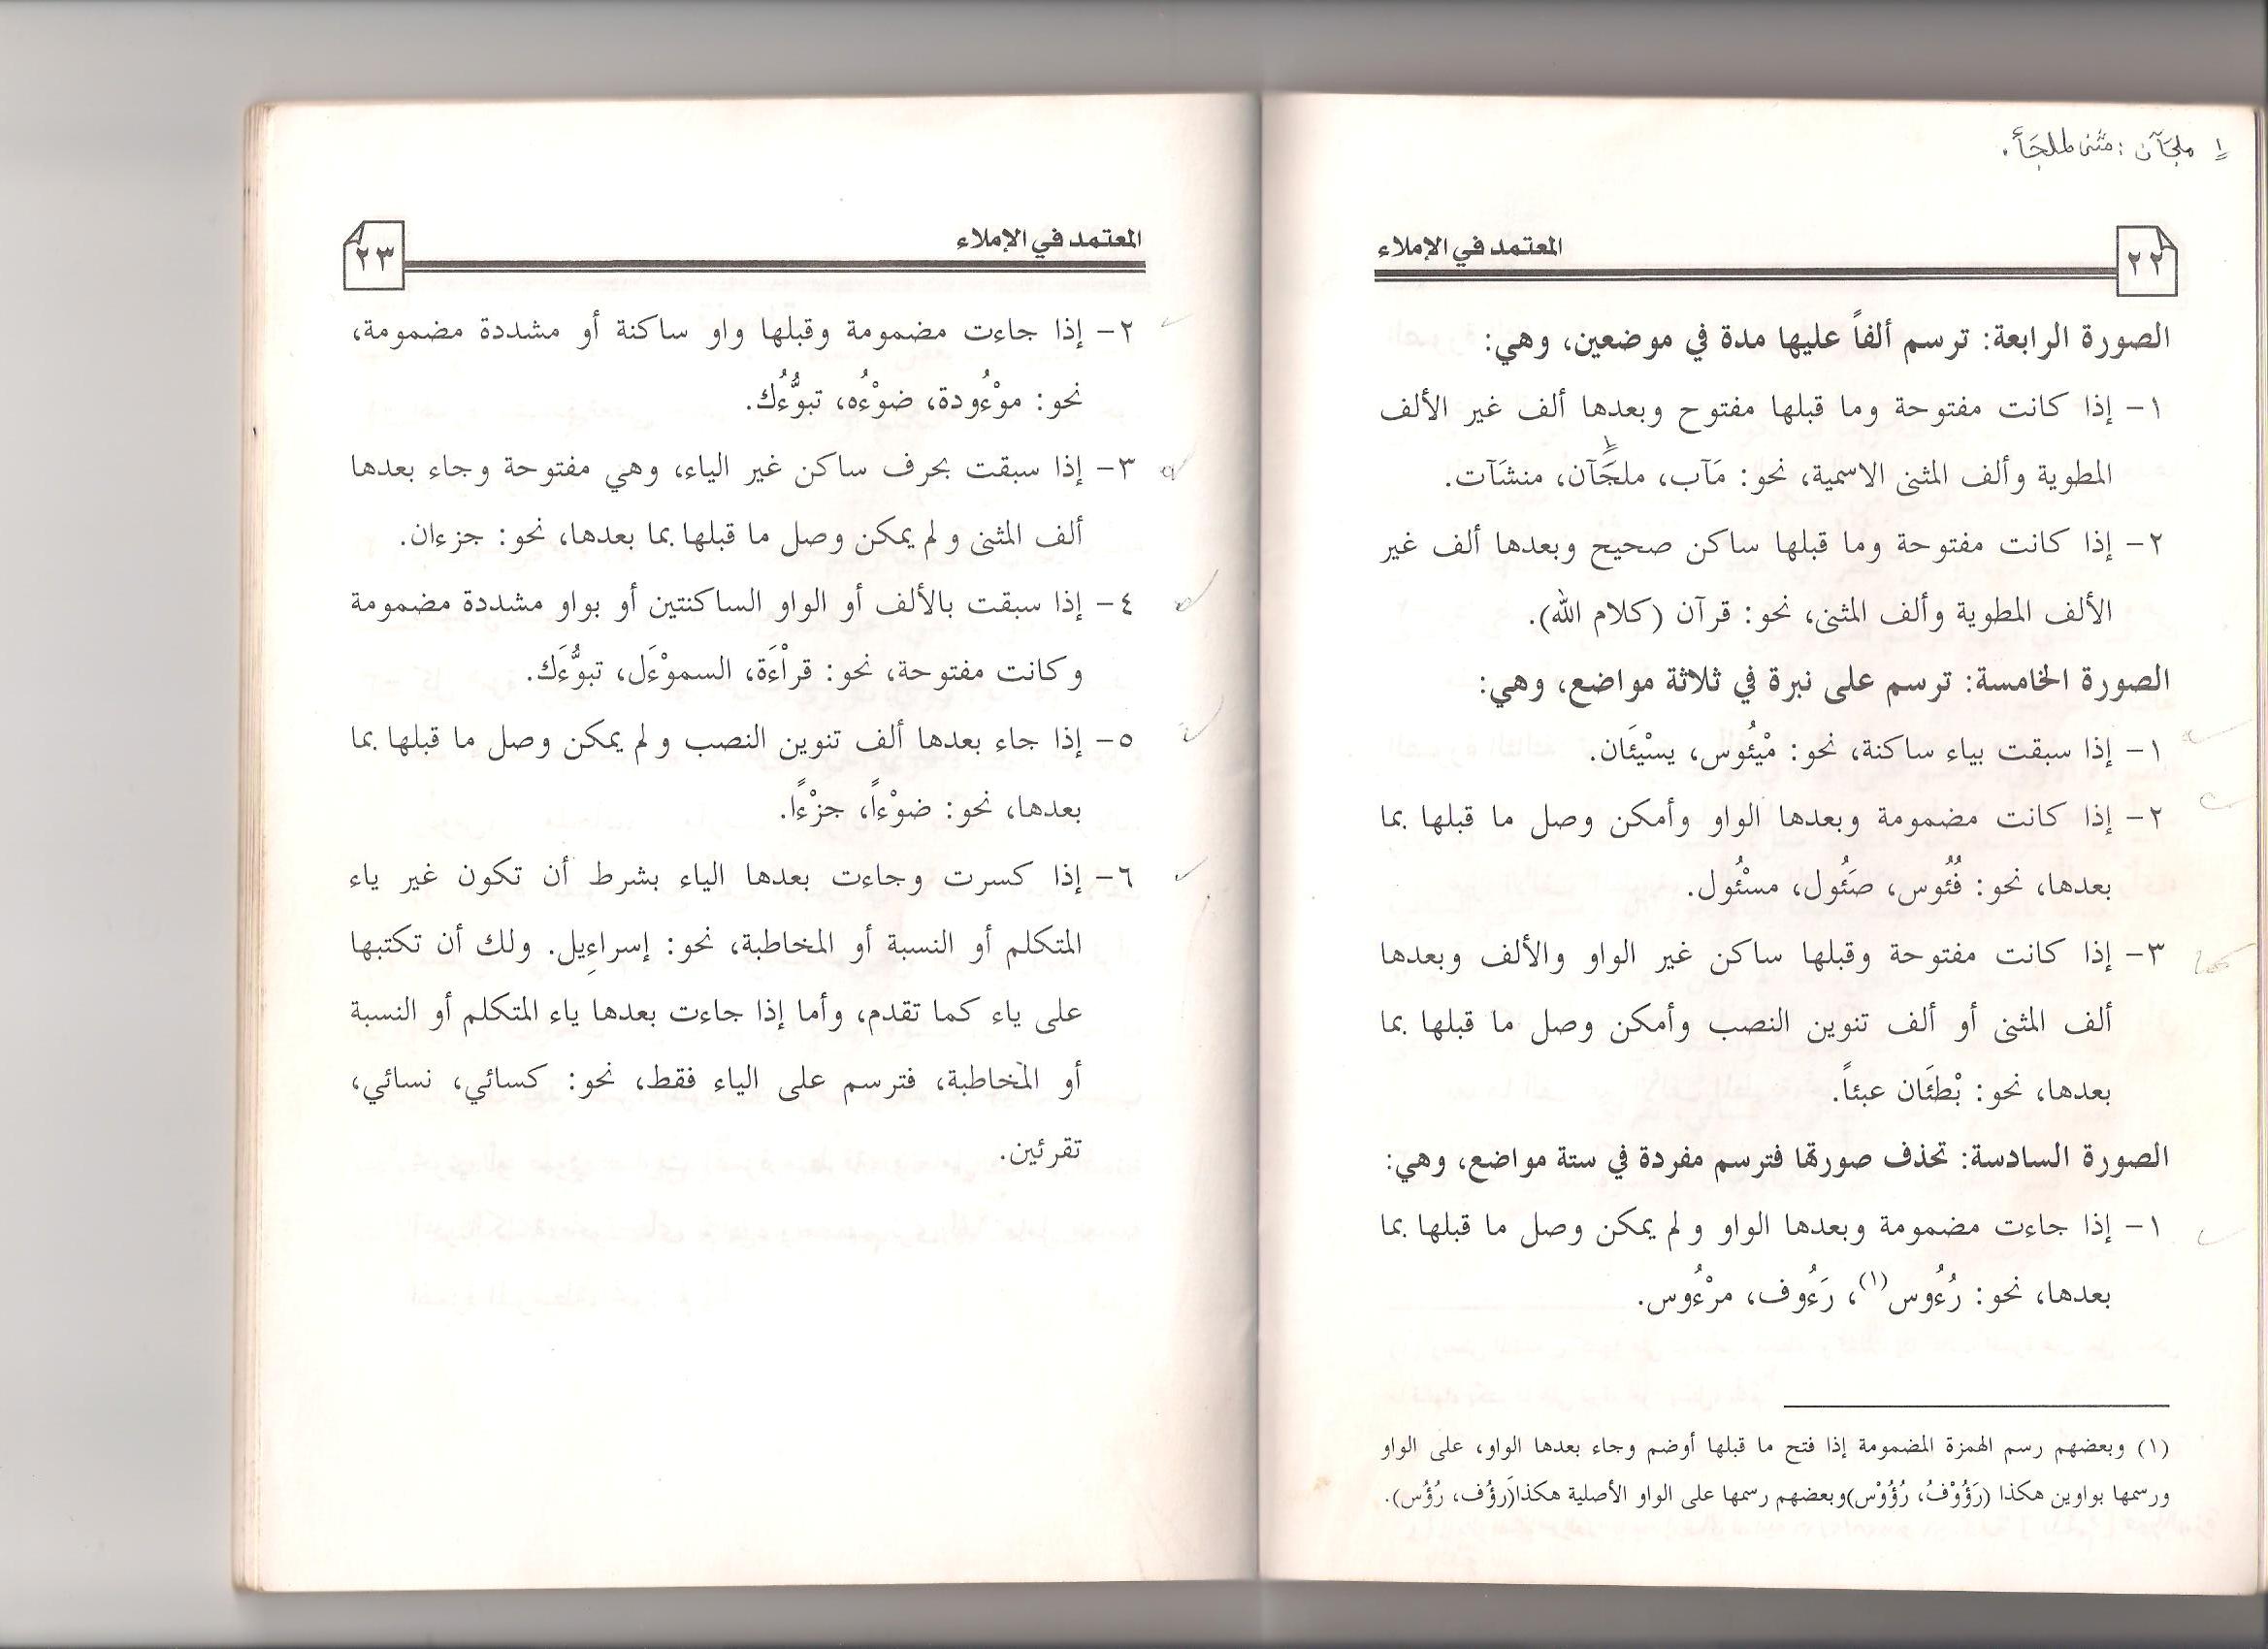 ١ ملجَآن : مثنى لملجَأ.
المعتمد في الإملاء
٢٢
الصورة الرابعة: ترسم ألفاً عليها مدة في موضعين، وهي:
١- إذا كانت مفتوحة وما قبلها مفتوح وبعدها ألف غير الألف
المطوية وألف المثنى الاسمية، نحو: مَآب، ملجَآن، منشَآت.
٢- إذا كانت مفتوحة وما قبلها ساكن صحيح وبعدها ألف غير
الألف المطوية وألف المثنى، نحو: قرآن (كلام الله).
الصورة الخامسة: ترسم على نبرة في ثلاثة مواضع، وهي:
١- إذا سبقت بياء ساكنة، نحو: مْيئُوس، يسْيئَان.
٢- إذا كانت مضمومة وبعدها الواو وأمكن وصل ما قبلها بما
بعدها، نحو: فُئُوس، صَئُول، مسْئُول.
٣- إذا كانت مفتوحة وقبلها ساكن غير الواو والألف وبعدها
ألف المثنى أو ألف تنوين النصب وأمكن وصل ما قبلها بما
بعدها، نحو: بْطئَان عبئاً.
الصورة السادسة: تحذف صورتها فترسم مفردة في ستة مواضع، وهي:
١- إذا جاءت مضمومة وبعدها الواو ولم يمكن وصل ما قبلها بما
بعدها، نحو: رُءُوس(١)، رَءُوف، مرْءُوس.
(١) وبعضهم رسم الهمزة المضمومة إذا فتح ما قبلها أوضم وجاء بعدها الواو، على الواو
ورسمها بواوين هكذا (رَؤُوْفُ، رُؤُوْس)وبعضهم رسمها على الواو الأصلية هكذا(رَؤُف، رُؤُس).
المعتمد في الإملاء
٢٣
٢- إذا جاءت مضمومة وقبلها واو ساكنة أو مشددة مضمومة،
نحو: موْءُودة، ضوْءُه، تبوُّءُك.
٣- إذا سبقت بحرف ساكن غير الياء، وهي مفتوحة وجاء بعدها
ألف المثنى ولم يمكن وصل ما قبلها بما بعدها، نحو: جزءان.
٤- إذا سبقت بالألف أو الواو الساكنتين أو بواو مشددة مضمومة
وكانت مفتوحة، نحو: قراْءَة، السموْءَل، تبوُّءَك.
٥- إذا جاء بعدها ألف تنوين النصب ولم يمكن وصل ما قبلها بما
بعدها، نحو: ضوْءاً، جزْءًا.
٦- إذا كسرت وجاءت بعدها الياء بشرط أن تكون غير ياء
المتكلم أو النسبة أو المخاطبة، نحو: إسراءِيل. ولك أن تكتبها
على ياء كما تقدم، وأما إذا جاءت بعدها ياء المتكلم أو النسبة
أو المخاطبة، فترسم على الياء فقط، نحو: كسائي، نسائي،
تقرئين.